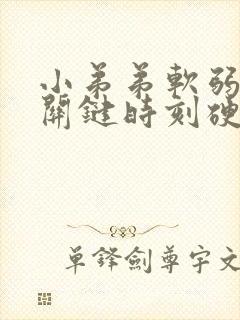 小弟弟軟弱
關鍵時刻硬
單鋒劍尊宇文